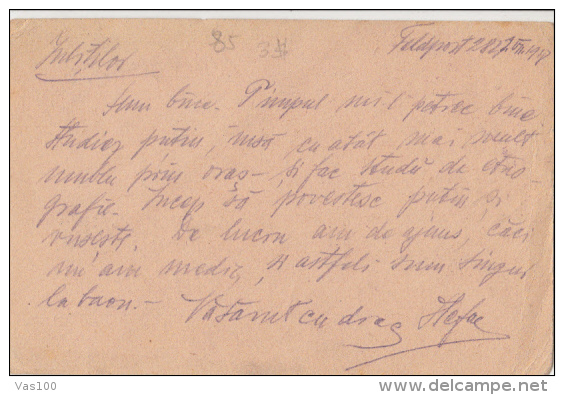 85
Iubiților
Feldpost 282
Sunt bine. Timpul mi-l petrec bine.
Studiez puțin, însă cu atât mai mult
umblu prin oraș și fac studii de etno-
grafie. Încep să povestesc puțin și
rusește. De lucru am de ajuns, căci
nu am medic, și astfel sunt singur
la baon.— Vă sărut cu drag
Vas100
www.delcampe.net